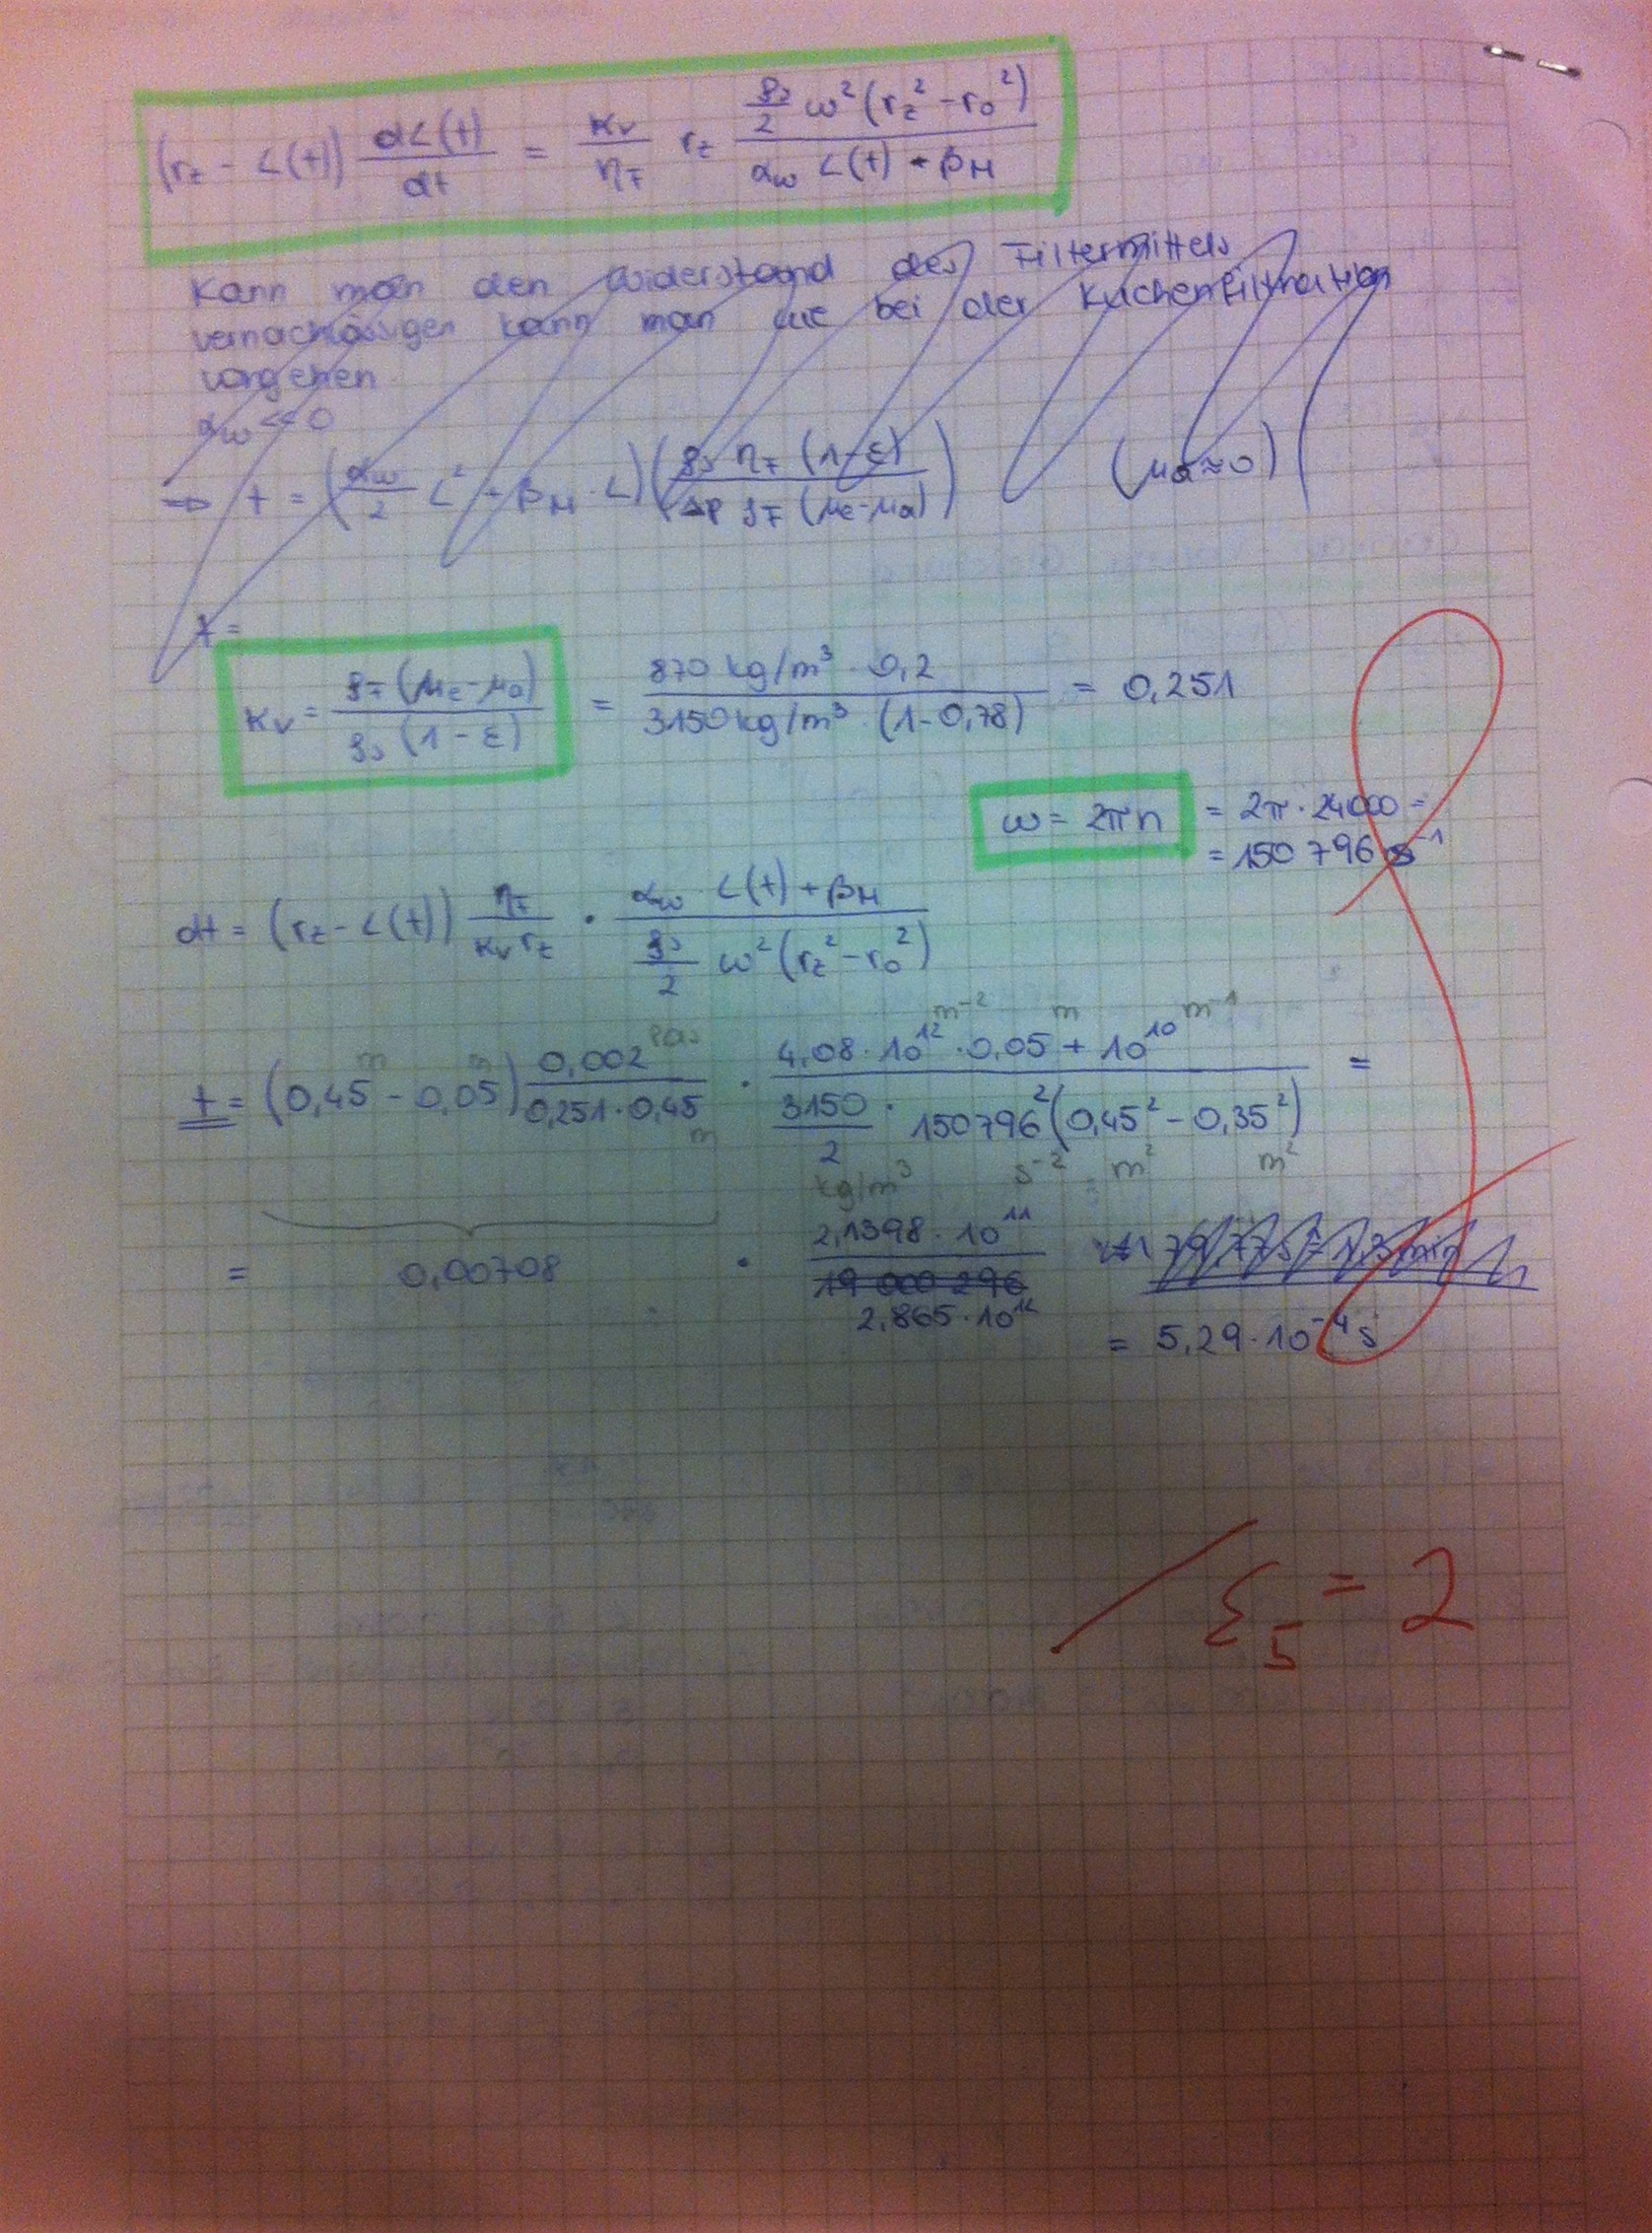 (r_z - L(t)) dL(t)/dt = κ_V/η_F r_z (ρ_s/2 ω² (r_z² - r_0²))/(α_w L(t) + β_M)
Kann man den Widerstand des Filtermittels
vernachlässigen kann man wie bei der Kuchenfiltration
vorgehen
α_w << 0
⇒ t = (α_w/2 L² + β_M · L) (ρ_s η_F (1-ε)/(Δp ρ_F (μ_e-μ_a))) (μ_a ≈ 0)
t =
κ_V = ρ_F (μ_e-μ_a)/(ρ_s (1-ε)) = (870 kg/m³ · 0,2)/(3150 kg/m³ · (1-0,78)) = 0,251
ω = 2πn = 2π · 24000 =
= 150 796 s⁻¹
dt = (r_z - L(t)) η_F/(κ_V r_z) · (α_w · L(t) + β_M)/(ρ_s/2 ω² (r_z² - r_0²))
m m Pas m⁻² m m⁻¹
t = (0,45 - 0,05) 0,002/(0,251 · 0,45) · (4,08 · 10¹² · 0,05 + 10¹⁰)/(3150/2 · 150796² (0,45² - 0,35²)) =
m kg/m³ s⁻² m² m²
= 0,00708 · 2,1398 · 10¹¹/2,865 · 10¹²
19 000 296
= 5,29 · 10⁻⁴ s
Σ₅ = 2